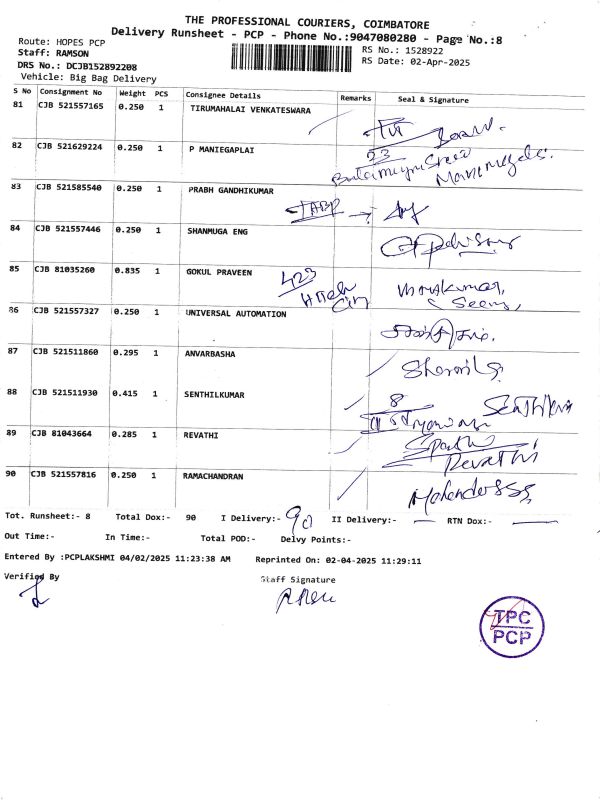 THE PROFESSIONAL COURIERS, COIMBATORE
Delivery Runsheet - PCP - Phone No.:9047080280 - Page No.:8
Route: HOPES PCP
Staff: RAMSON
DRS No.: DCJB152892208
Vehicle: Big Bag Delivery
RS No.: 1528922
RS Date: 02-Apr-2025
S No Consignment No Weight PCS Consignee Details Remarks Seal & Signature
81 CJB 521557165 0.250 1 TIRUMAHALAI VENKATESWARA
82 CJB 521629224 0.250 1 P MANIEGAPLAI
23
83 CJB 521585540 0.250 1 PRABH GANDHIKUMAR
84 CJB 521557446 0.250 1 SHANMUGA ENG
85 CJB 81035260 0.835 1 GOKUL PRAVEEN 423
86 CJB 521557327 0.250 1 UNIVERSAL AUTOMATION
87 CJB 521511860 0.295 1 ANVARBASHA
88 CJB 521511930 0.415 1 SENTHILKUMAR 8
89 CJB 81043664 0.285 1 REVATHI
Revathi
90 CJB 521557816 0.250 1 RAMACHANDRAN
Tot. Runsheet:- 8 Total Dox:- 90 I Delivery:- 90 II Delivery:- — RTN Dox:- —
Out Time:- In Time:- Total POD:- Delvy Points:-
Entered By :PCPLAKSHMI 04/02/2025 11:23:38 AM Reprinted On: 02-04-2025 11:29:11
Verified By Staff Signature
TPC
PCP